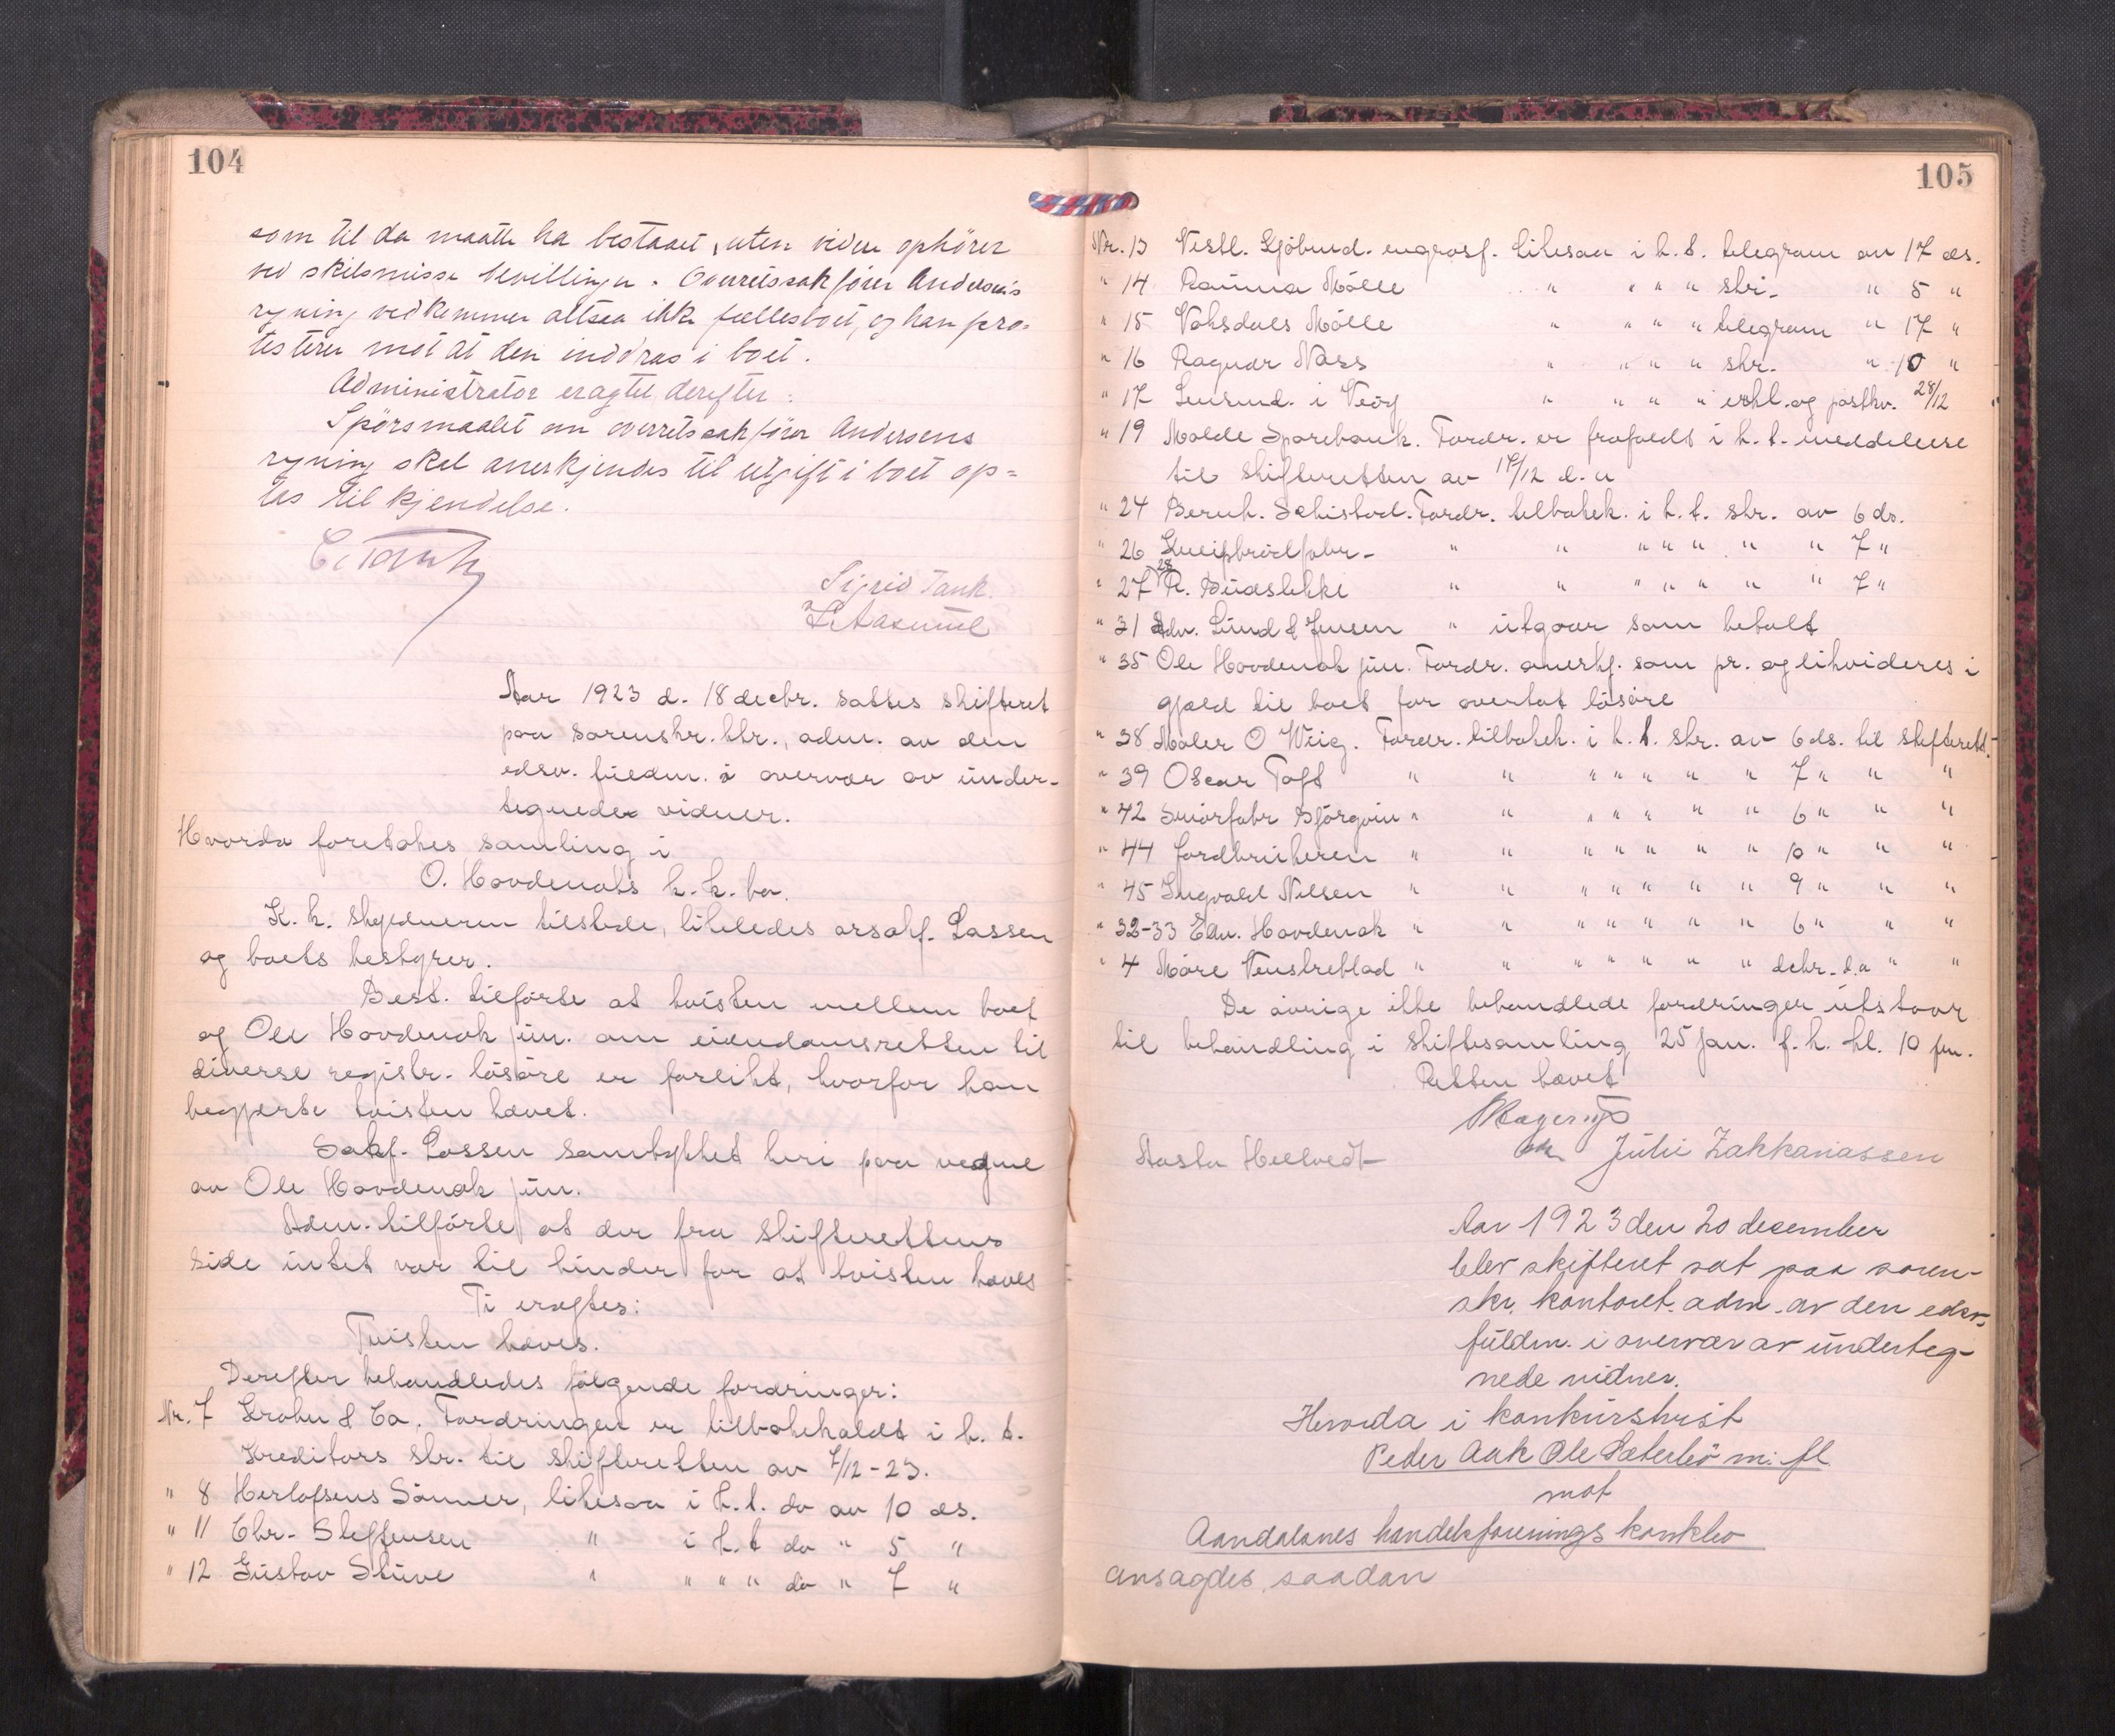 104
som til da maatte ha bestaaet, uten videre ophører
ved skilsmisse bevillingen. Overretssakfører Andersens
regning vedkommer altsaa ikke fællesboet, og han pro-
testerer mot at den inddras i boet.
Administrator eragtet derefter:
Spørsmaalet om overretssakfører Andersens
regning skal anerkjendes til utgift i boet op-
tas til kjendelse.
C. Tank
Sigrid Tank.
Aar 1923 d. 18 decbr. sattes skifteret
paa sorenskr. ktr., adm. av den
edsv. fuldm. i overvær av under-
tegnede vidner.
Hvorda foretokes samling i
O. Hovdenaks k. k. bo.
K. k. skyldneren tilstede, likeledes orsakf. Lassen
og boets bestyrer.
Best. tilførte at tvisten mellem boet
og Ole Hovdenak jun. om eiendomsretten til
diverse registr. løsøre er forlikt, hvorfor han
begjærte tvisten hævet.
Sakf. Lassen samtykket heri paa vegne
av Ole Hovdenak jun.
Adm. tilførte at der fra skifterettens
side intet var til hinder for at tvisten hæves
Ti eragtes:
Tvisten hæves.
Derefter behandledes følgende fordringer:
Nr. 7 Krohn & Co. Fordringen er tilbakekaldt i h. t.
Kreditors skr. til skifteretten av 7/12-23.
" 8 Herlofsens Sønner, likesaa i h. t. do av 10 ds.
" 11 Chr. Steffensen " i h. t do " 5 "
" 12 Gustav Stüve " " " " do " 7 "
105
Nr. 13 Vestl. Kjøbmd. engrosf. likesaa i h. t. telegram av 17 ds.
" 14 Rauma Mølle " " " " skr. " 5 "
" 15 Vaksdals Mølle " " " " telegram " 17 "
" 16 Ragnar Næss " " " " skr. " 10 "
" 17 Lensmd. i Veøy " " " " erkl. og postkv. 28/12
" 19 Molde Sparebank. Fordr. er frafaldt i h. t. meddelelse
til skifteretten av 17/12 d. a
" 24 Bernh. Schistad. Fordr. tilbakek. i h. t. skr. av 6 ds.
" 26 Kneipbrødfabr. " " " " " " " 7 "
" 27 28 R. " " " " " " " 7 "
" 31 Adv. Lund & Jensen " utgaar som betalt
" 35 Ole Hovdenak jun. Fordr. anerkj. som pr. og likvideres i
gjæld til boet for overtat løsøre
" 38 Maler O Wiig. Fordr. tilbakek. i h. t. skr. av 6 ds. til skifterett.
" 39 Oscar Toft " " " " " " " 7 " " "
" 42 Smørfabr Bjørgvin " " " " " " " 6 " " "
" 44 Jordbrukeren " " " " " " " 10 " " "
" 45 Ingvald Nilsen " " " " " " " 9 " " "
" 32-33 Edv. Hovdenak " " " " " " " 6 " " "
" 4 Møre Venstreblad " " " " " " " decbr. d. a " "
De øvrige ikke behandlede fordringer utstaar
til behandling i skiftesamling 25 jan. f. k. kl. 10 fm.
Retten hævet
Aasta Hellvedt
Julie Zakkariassen
Aar 1923 den 20 desember
blev skifteret sat paa soren-
skr. kontoret. adm. av den edsv.
fuldm. i overvær av underteg-
nede vidner.
Hvorda i konkurstvist
Peder Aak Ole Sæterbø m. fl
mot
Aandalsnes handelsforenings konkbo
ansagdes saadan